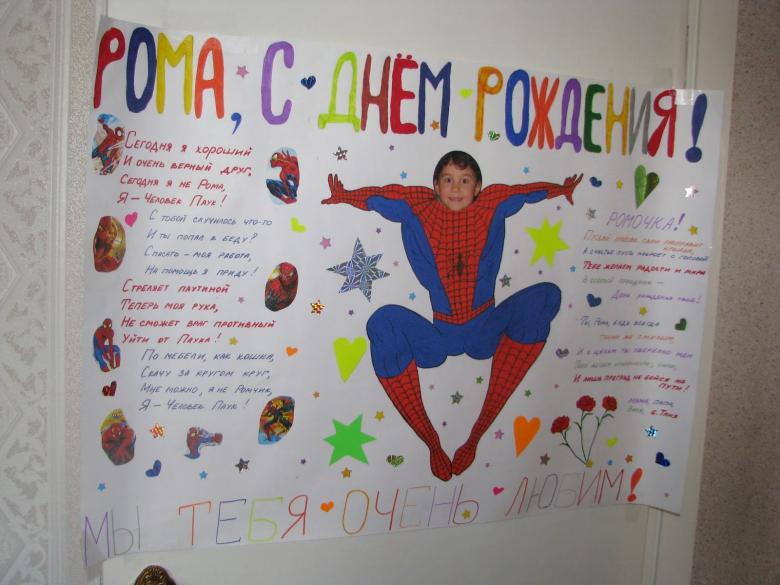 РОМА, С ДНЁМ РОЖДЕНИЯ!
Сегодня я хороший
И очень верный друг,
Сегодня я не Рома,
Я – Человек Паук!
С тобой случилось что-то
И ты попал в беду?
Спасать – моя работа,
На помощь я приду!
Стреляет паутиной
Теперь моя рука,
Не сможет враг противный
Уйти от Паука!
По мебели, как кошка,
Скачу за кругом круг,
Мне можно, я не Ромчик,
Я – Человек Паук!
РОМОЧКА!
Пускай твоё сани расправит
крылья,
А счастье пусть накроет с головой
Тебе желаем радости и мира
В особый праздник –
День рождения твой!
Ты, Рома, будь всегда
таким же
И к целям ты уверенно иди
И лишь преград не бойся на
пути!
мама, папа,
Вика, б. Таня
МЫ ТЕБЯ ОЧЕНЬ ЛЮБИМ!